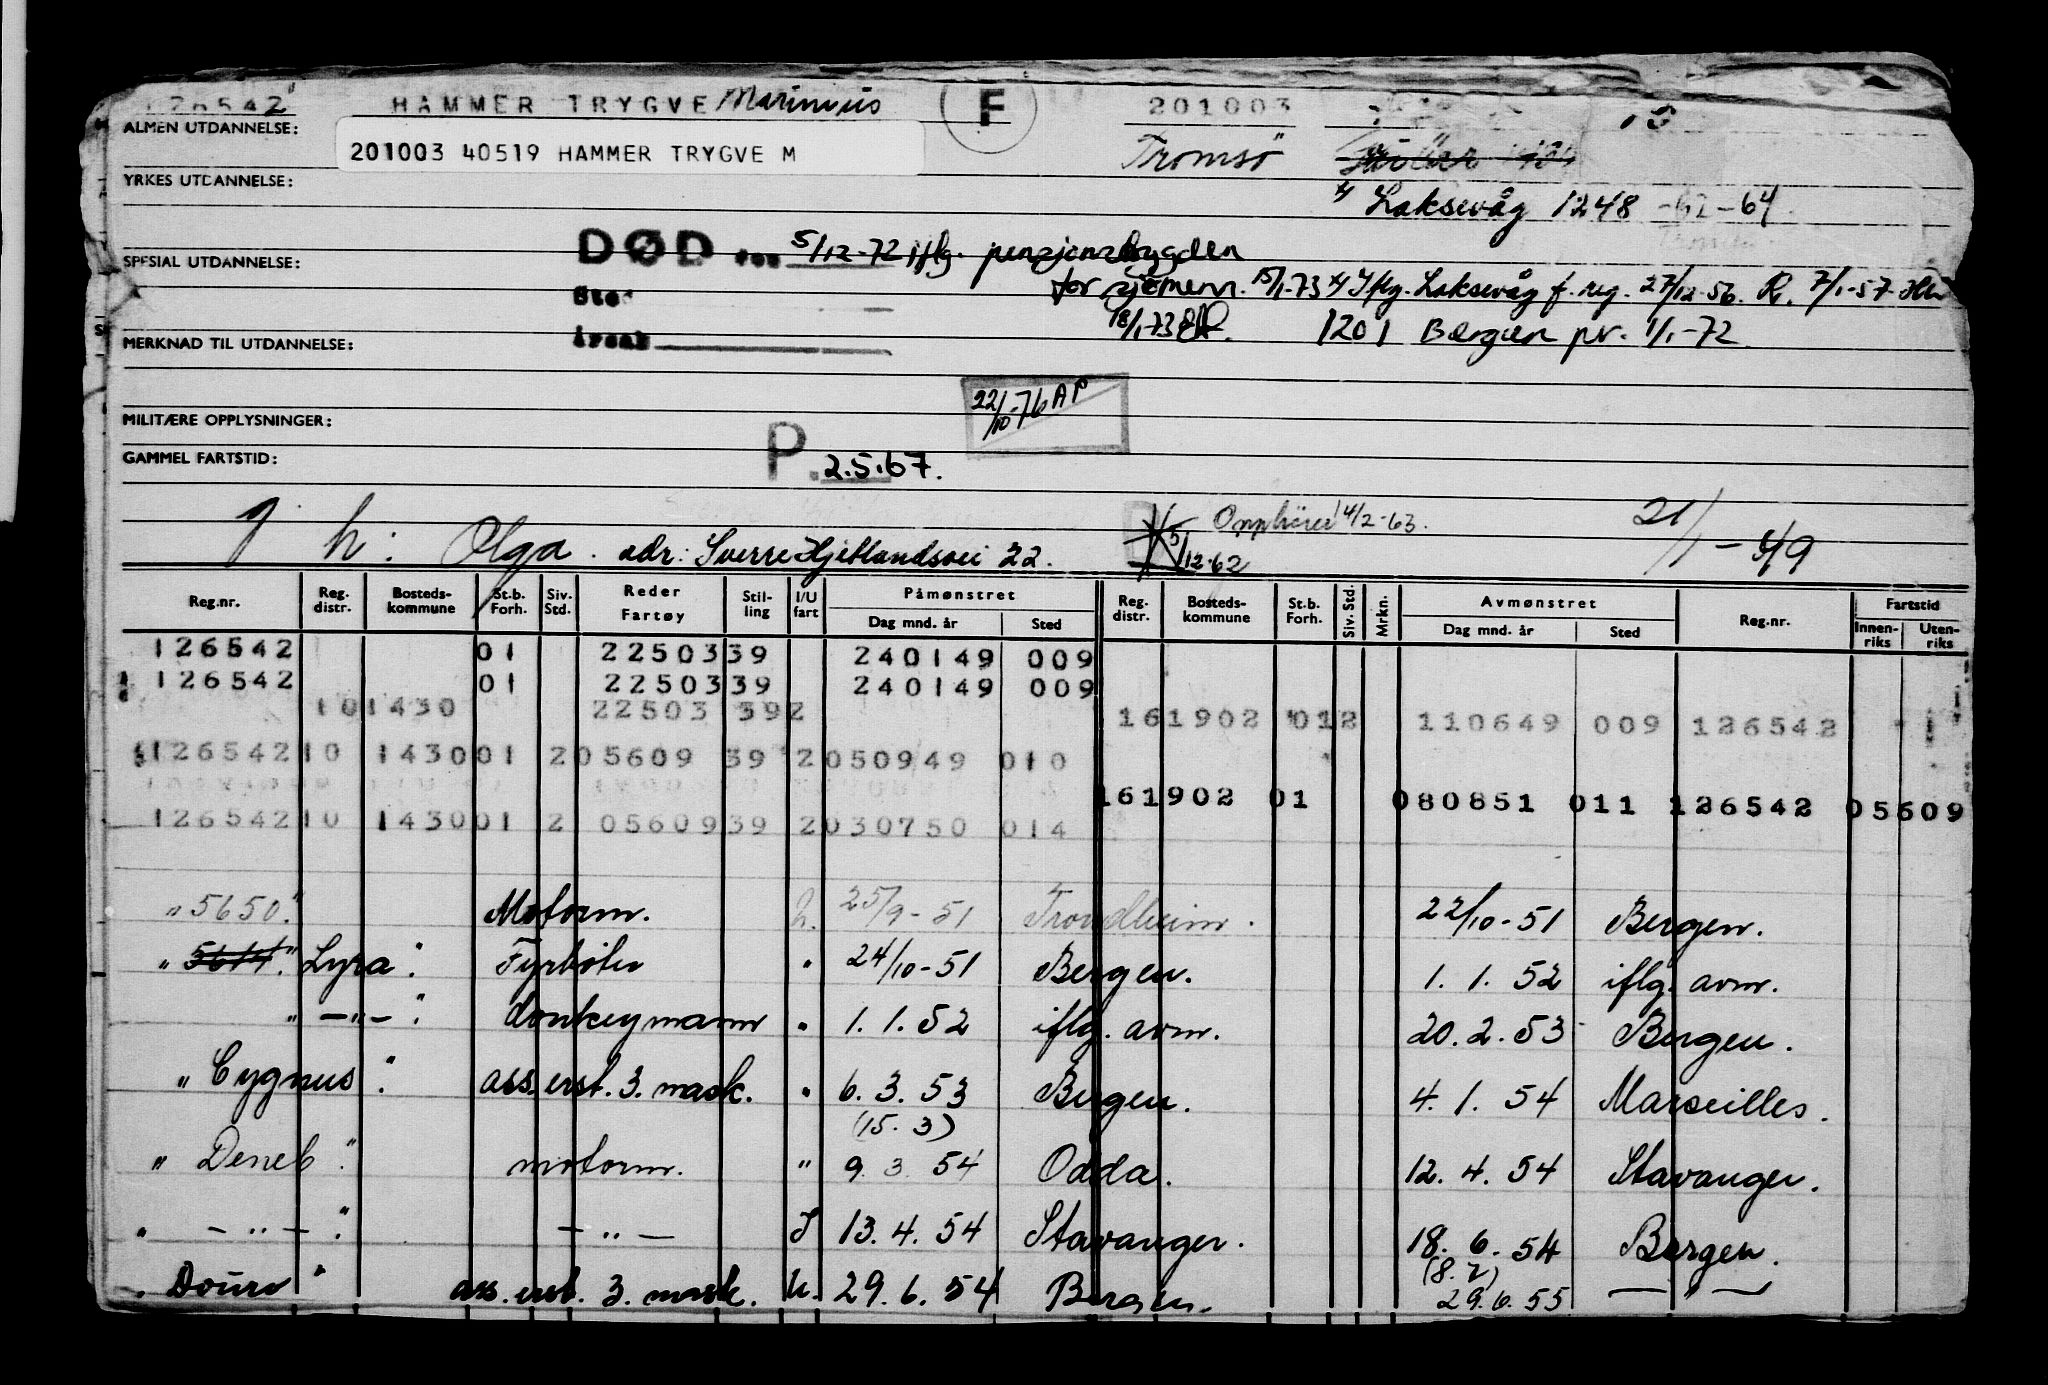 126542 HAMMER TRYGVE Marinius F 201003
ALMEN UTDANNELSE:
201003 40519 HAMMER TRYGVE M
Tromsø
YRKES UTDANNELSE:
Laksevåg 1248 -62-64
DØD 5/12-72 iflg. pensjonstrygden
SPESIAL UTDANNELSE:
for sjømenn. 15/1-73 Iflg. Laksevåg f. reg. 27/12-56. R. 7/1-57
Sted
18/1-73 1201 Bergen pr. 1/1-72.
Årsak
MERKNAD TIL UTDANNELSE:
22/10-76 AP
MILITÆRE OPPLYSNINGER:
GAMMEL FARTSTID:
P. 2.5.67.
Opphører 14/2-63. 21/1-49
g. h: Olga. adr: Sverre Hjetlandsvei 22. 5/12-62
Reg.nr. Reg. distr. Bosteds-kommune St.b. Forh. Siv. Std. Reder Fartøy Stil-ling I/U fart Påmønstret Dag mnd. år Sted Reg. distr. Bosteds-kommune St.b. Forh. Siv. Std. Mrkn. Avmønstret Dag mnd. år Sted Reg.nr. Fartstid Innen-riks Uten-riks
126542 01 22503 39 240149 009
126542 01 22503 39 240149 009
10 1430 22503 39 2 16 1902 01 2 110649 009 126542
126542 10 1430 01 2 05609 39 2 050949 010
16 1902 01 080851 011 126542 05609
126542 10 1430 01 2 05609 39 2 030750 014
"5650." Motorm. U. 25/9-51 Trondheim. 22/10-51 Bergen.
" 5614." Lyra". Fyrbøter " 24/10-51 Bergen. 1. 1. 52 iflg. avm.
" —"— ". donkeymann " 1. 1. 52 iflg. avm. 20. 2. 53 Bergen.
" Cygnus ". ass. erst. 3. mask. " 6. 3. 53 Bergen. 4. 1. 54 Marseilles.
(15. 3)
" Deneb ". motorm. " 9. 3. 54 Odda. 12. 4. 54 Stavanger.
" —"— ". —"— I 13. 4. 54 Stavanger. 18. 6. 54 Bergen.
(8. 7)
" Douro " ass. erst. 3. mask. U. 29. 6. 54 Bergen. 29. 6. 55 —"—